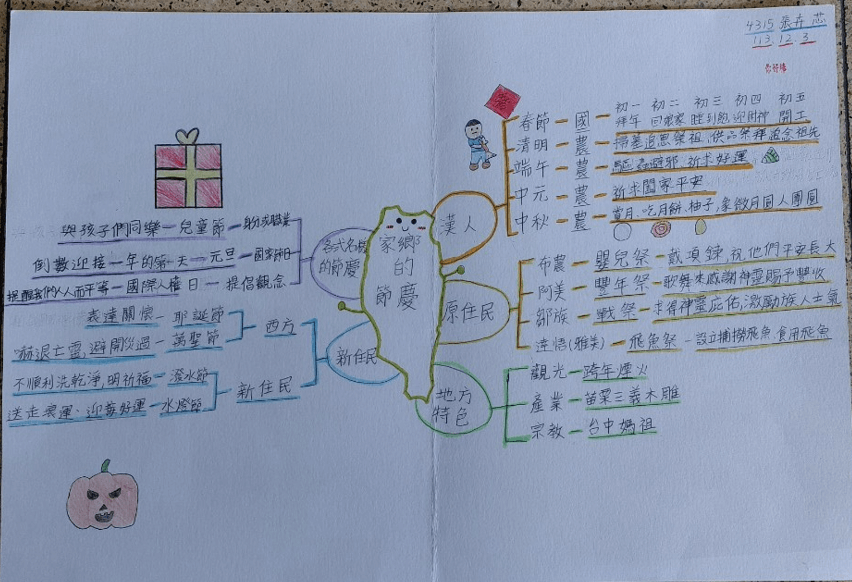 4315 張卉芯
113.12.3
春
家鄉的節慶
漢人
初一 初二 初三 初四 初五
春節 — 國 — 拜年 回娘家 睡到飽 迎財神 開工
清明 — 農 — 掃墓追思祭祖,供品祭拜
端午 — 農 — 驅蟲避邪 祈求好運
中元 — 農 — 祈求闔家平安
中秋 — 農 — 賞月、吃月餅、柚子,象徵月圓人團圓
原住民
布農 — 嬰兒祭 — 戴項鍊,祝他們平安長大
阿美 — 豐年祭 — 歌舞來感謝神靈賜予豐收
鄒族 — 戰祭 — 求得神靈庇佑,激勵族人士氣
達悟(雅美) — 飛魚祭 — 設立捕撈飛魚、食用飛魚
地方特色
觀光 — 跨年煙火
產業 — 苗栗三義木雕
宗教 — 台中媽祖
各式名稱的節慶
與孩子們同樂 — 兒童節 — 身份或職業
倒數迎接一年的第一天 — 元旦 — 國家節日
提醒我們人人而平等 — 國際人權日 — 提倡觀念
新住民
表達關懷 — 耶誕節 — 西方
嚇退亡靈,避開災禍 — 萬聖節
不順利洗乾淨, — 潑水節 — 新住民
送走衰運、迎接好運 — 水燈節